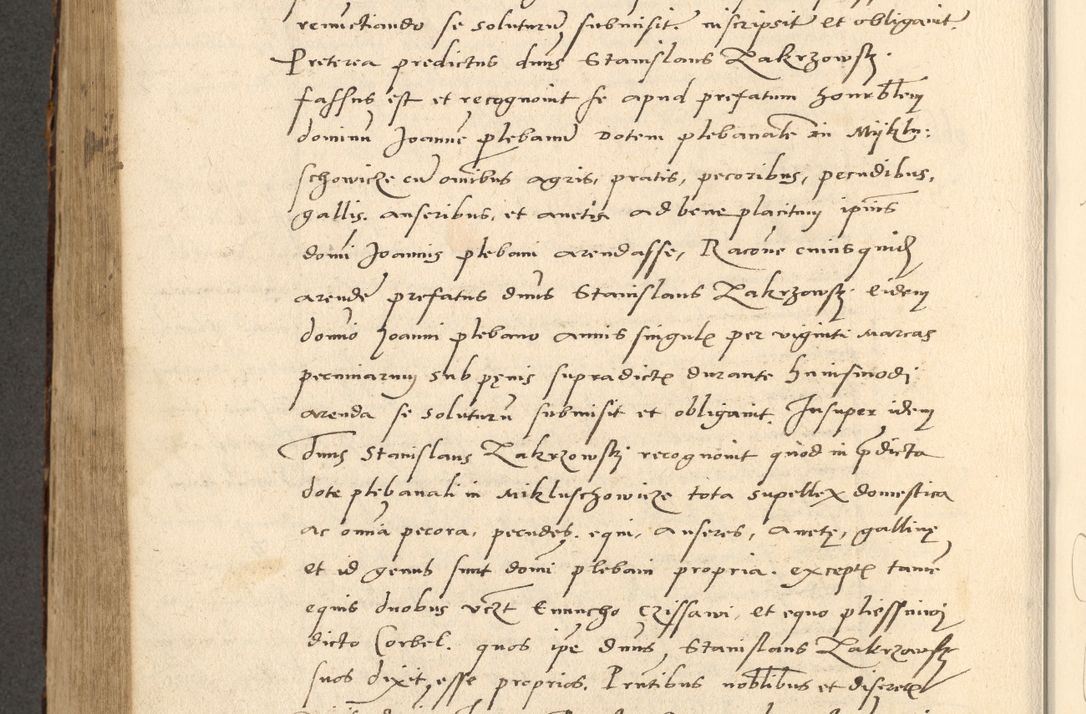 renunctiando se soluturũ submisit. inscripsit et obligauit.
Preterea predictus dnus Stanislaus Zakrzowskj.
fassus est et recognouit se apud prefatum honorblem
dominũ Joannẽ plebanũ dotem plebanalẽ in Myklu:
schowicze cũ omnibus agris, pratis, pecoribus, pecudibus,
gallis. anseribus, et anetis ad bene placitum ipsius
domi Joannis plebani arendasse, Racone cuius quid
arendẽ prefatus dnus Stanislaus Zakrzowskj eidem
domio Joanni plebano annis singul per viginti Marcas
pecuniarum sub pęnis supradict durante huiusmodi
arenda se soluturũ submisit et obligauit. Insuper idem
Dnus Stanislaus Zakrzowskj recognouit quod in pdicta
dote plebanali in Mikluschowicze tota supellex domestica
ac omia pecora, pecudes, equi, anseres, anetę, gallinę
et id genus sunt domi plebani propria. except tamẽ
equis duobus vczt Enuncho czissawi, et equo pliessniwi
dicto Corbel. quos ipe dnus Stanislaus Zakrzowskj
suos dixit esse proprios. Prntibus noblibus et discret